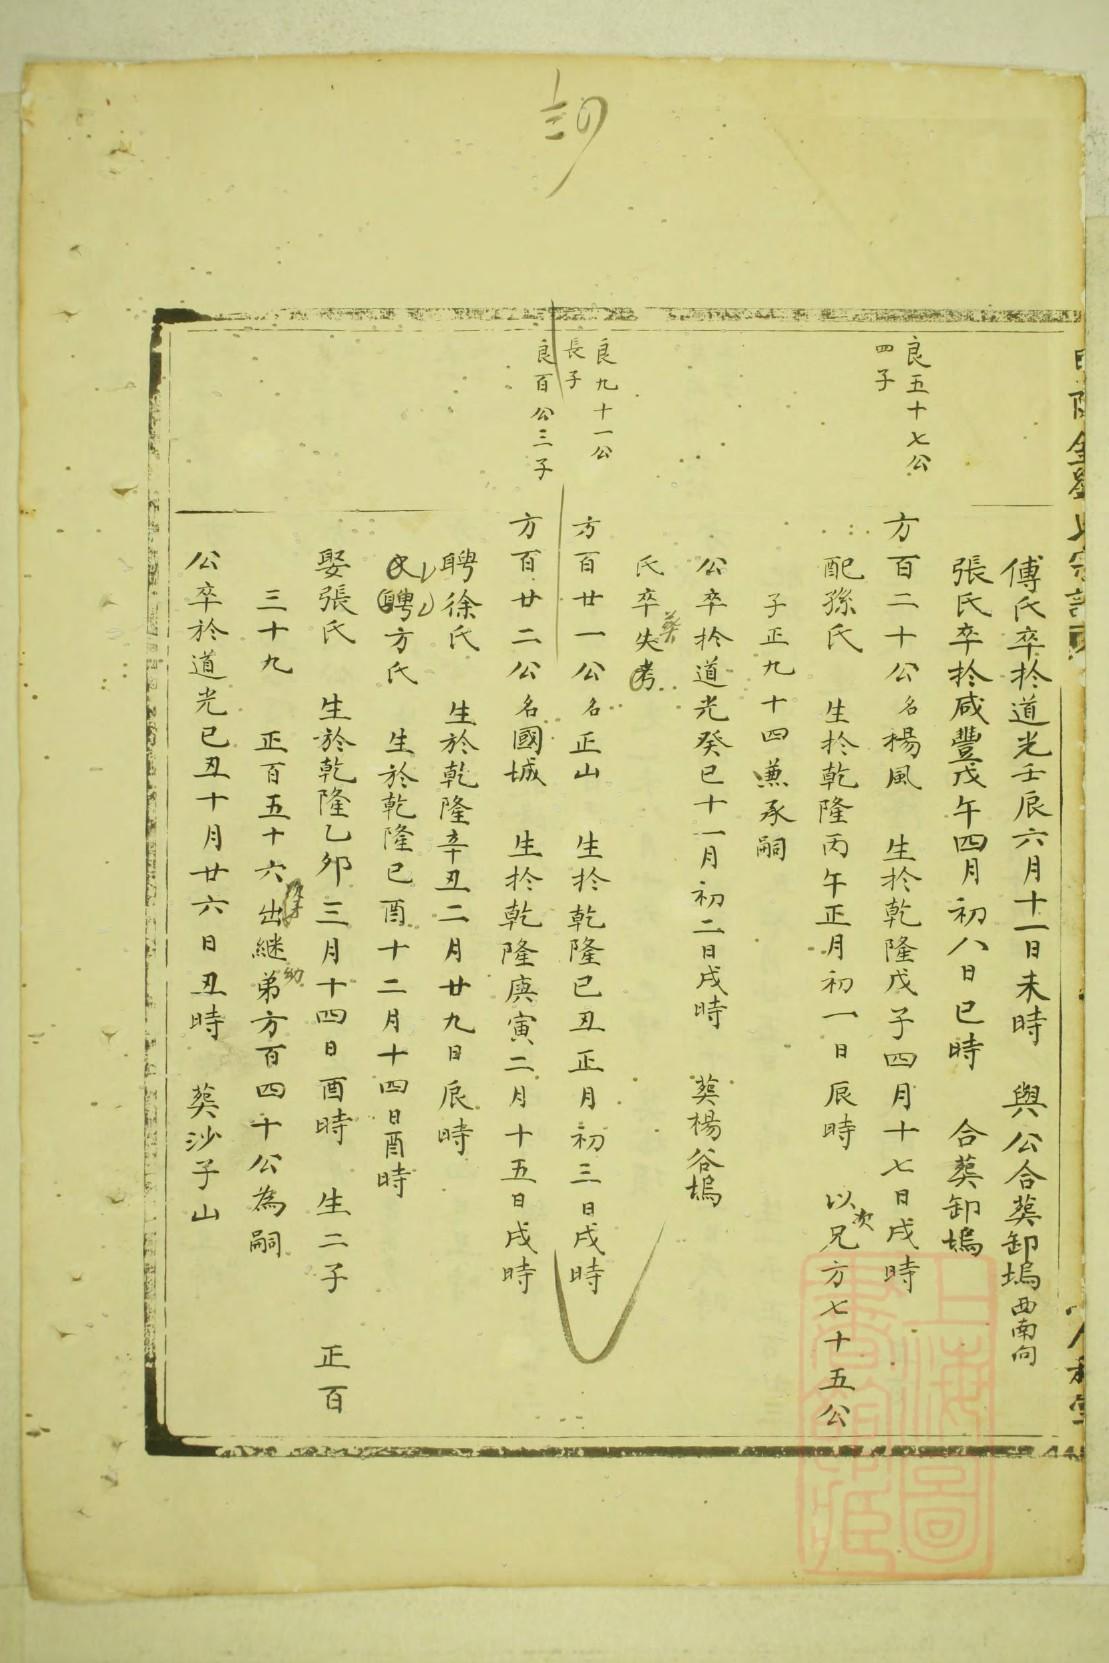 傅氏卒於道光壬辰六月十一日未時 與公合葬卸塢西南向
張氏卒於咸豐戊午四月初八日巳時 合葬卸塢
良五十七公
四子
方百二十公名楊風 生於乾隆戊子四月十七日戌時
配孫氏 生於乾隆丙午正月初一日辰時 以次兄方七十五公
子正九十四兼承嗣
公卒於道光癸巳十一月初二日戌時 葬楊谷塢
氏卒葬失考
良九十一公
長子
方百廿一公名正山 生於乾隆己丑正月初三日戌時
良百公三子
方百廿二公名國城 生於乾隆庚寅二月十五日戌時
聘徐氏 生於乾隆辛丑二月廿九日辰時
聘方氏 生於乾隆己酉十二月十四日酉時
娶張氏 生於乾隆乙卯三月十四日酉時 生二子 正百
三十九 正百五十六出繼幼弟方百四十公為嗣
公卒於道光己丑十月廿六日丑時 葬沙子山
上海圖
書館藏